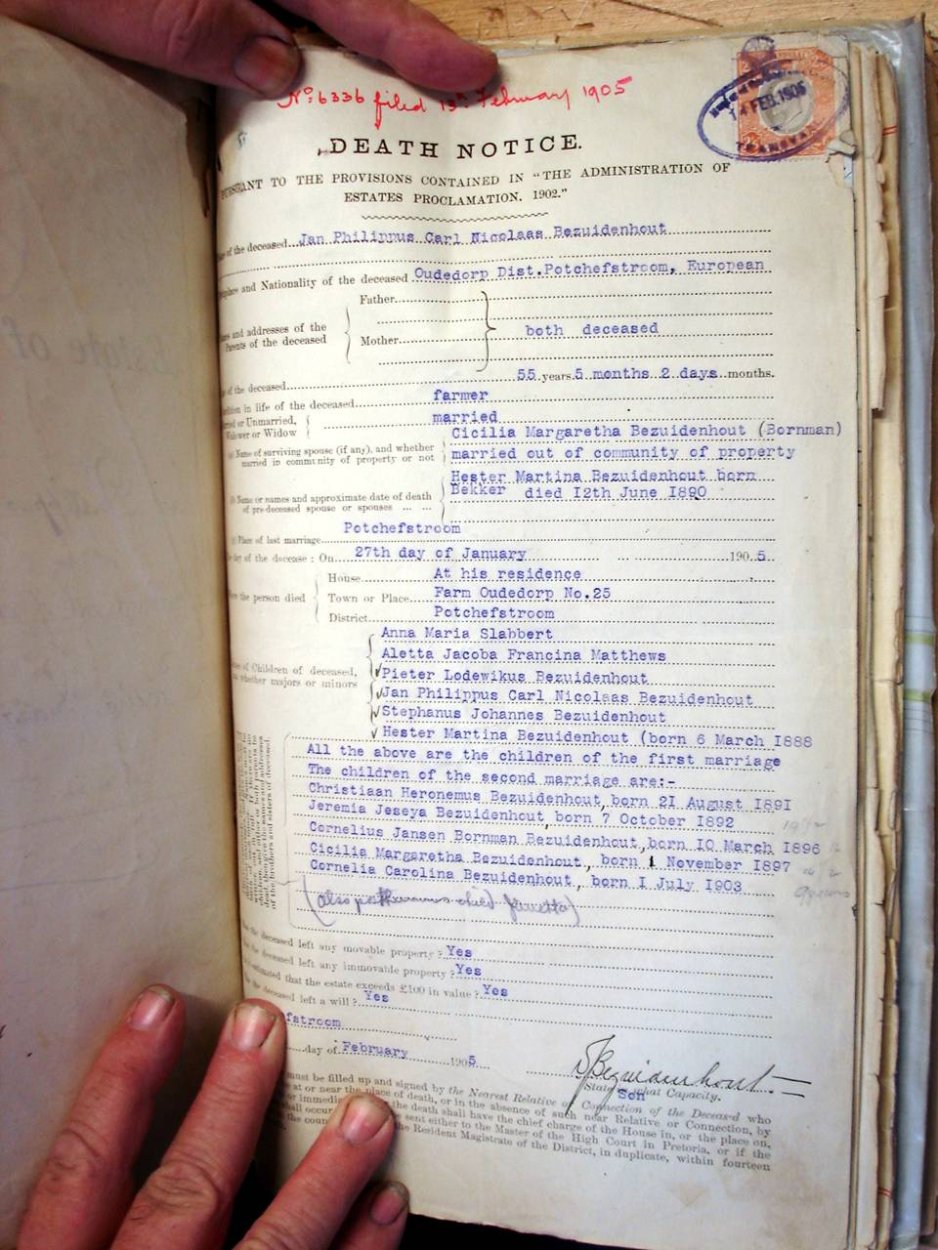 No: 6336 filed 13th February 1905
14 FEB. 1905
TRANSVAAL
DEATH NOTICE.
TO THE PROVISIONS CONTAINED IN "THE ADMINISTRATION OF
ESTATES PROCLAMATION. 1902."
of the deceased Jan Philippus Carl Nicolaas Bezuidenhout
and Nationality of the deceased Oudedorp Dist.Potchefstroom, European
Father
and addresses of the
Parents of the deceased
both deceased
Mother
of the deceased 55 years 5 months 2 days months.
in life of the deceased farmer
or Unmarried, married
or Widow
Name of surviving spouse (if any), and whether Cicilia Margaretha Bezuidenhout (Bornman)
married in community of property or not married out of community of property
Name or names and approximate date of death Hester Martina Bezuidenhout born
of pre-deceased spouse or spouses ... ... Bekker died I2th June I890
Place of last marriage Potchefstroom
of the decease: On 27th day of January 190 5
House At his residence
the person died Town or Place Farm Oudedorp No.25
District Potchefstroom
Anna Maria Slabbert
Aletta Jacoba Francina Matthews
of Children of deceased, Pieter Lodewikus Bezuidenhout
whether majors or minors Jan Philippus Carl Nicolaas Bezuidenhout
Stephanus Johannes Bezuidenhout
Hester Martina Bezuidenhout (born 6 March I888
All the above are the children of the first marriage
The children of the second marriage are:-
Christiaan Heronemus Bezuidenhout, born 2I August I89I
Jeremia Jeseya Bezuidenhout, born 7 October I892
Cornelius Jansen Bornman Bezuidenhout, born I0 March I896
Cicilia Margaretha Bezuidenhout, born 1 November I897
Cornelia Carolina Bezuidenhout, born I July I903
(also child
the deceased left any movable property? Yes
the deceased left any immovable property? Yes
that the estate exceeds £100 in value? Yes
the deceased left a will? Yes
fstroom
day of February 1905
Bezuidenhout
State Capacity.
Son
must be filled up and signed by the Nearest Relative or Connection of the Deceased who
at or near the place of death, or in the absence of such near Relative or Connection, by
or immediately the death shall have the chief charge of the House in, or the place on,
shall occur sent either to the Master of the High Court in Pretoria, or if the
the Resident Magistrate of the District, in duplicate, within fourteen